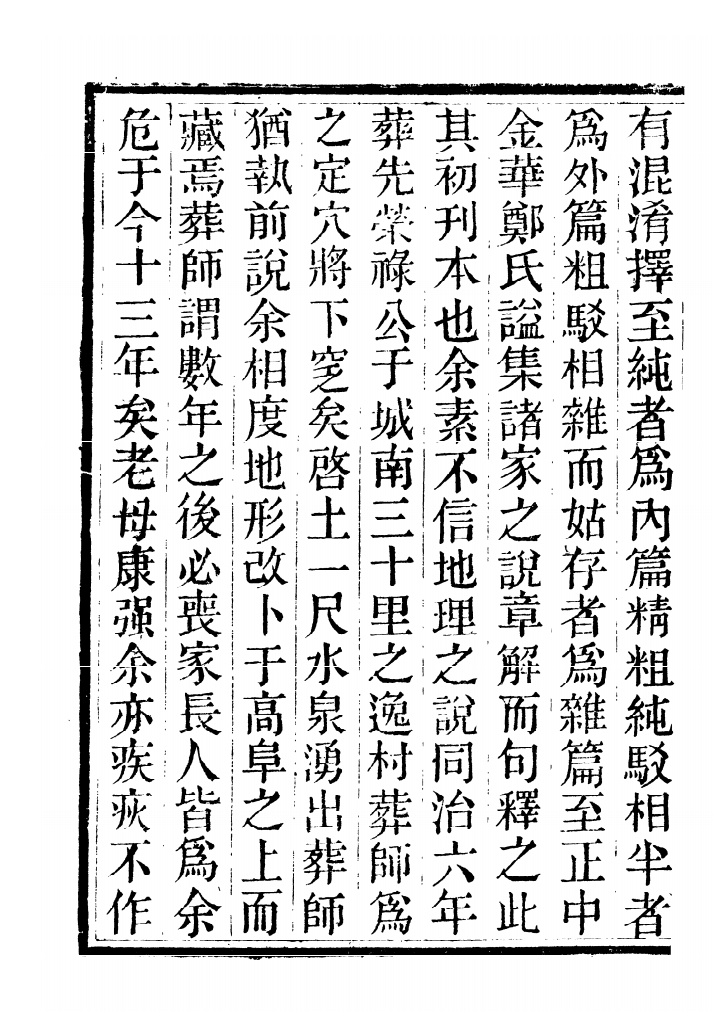 有混淆擇至純者爲內篇精粗純駁相半者
爲外篇粗駁相雜而姑存者爲雜篇至正中
金華鄭氏謐集諸家之說章解而句釋之此
其初刊本也余素不信地理之說同治六年
葬先榮祿公于城南三十里之逸村葬師爲
之定穴將下窆矣啓土一尺水泉湧出葬師
猶執前說余相度地形改卜于高阜之上而
藏焉葬師謂數年之後必喪家長人皆爲余
危于今十三年矣老母康强余亦疾疢不作